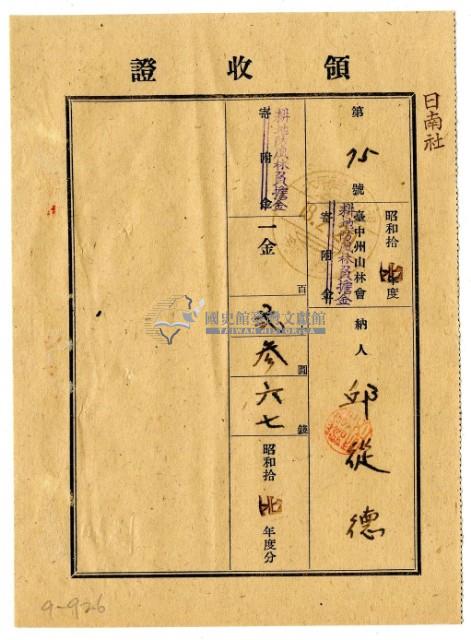 領收證
日南社
第75號
昭和拾 年度
臺中州山林會
寄附金
耕地防風林負擔金
納人 邱從德
寄附金
耕地防風林負擔金
一金
百 圓 錢
弐參六七
昭和拾 年度分
國史館臺灣文獻館
TAIWAN HISTORICA
9-926